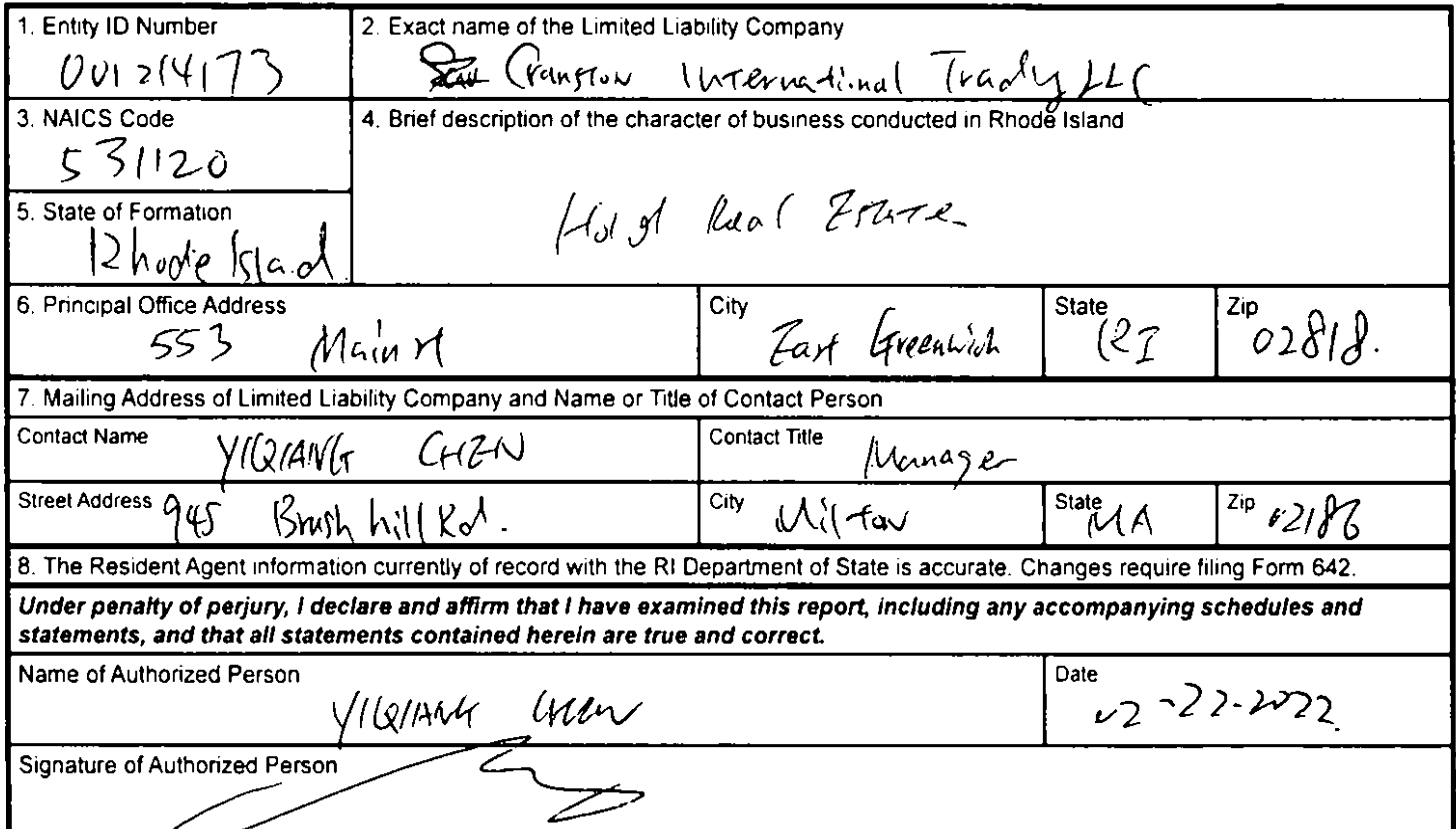 1. Entity ID Number
001214173
2. Exact name of the Limited Liability Company
Cranston International Trading LLC
3. NAICS Code
531120
4. Brief description of the character of business conducted in Rhode Island
Hold Real Estate
5. State of Formation
Rhode Island
6. Principal Office Address
553 Main st
City
East Greenwich
State
RI
Zip
02818.
7. Mailing Address of Limited Liability Company and Name or Title of Contact Person
Contact Name
YIQIANG CHEN
Contact Title
Manager
Street Address
945 Brush hill Rd.
City
Milton
State
MA
Zip
02186
8. The Resident Agent information currently of record with the RI Department of State is accurate. Changes require filing Form 642.
Under penalty of perjury, I declare and affirm that I have examined this report, including any accompanying schedules and
statements, and that all statements contained herein are true and correct.
Name of Authorized Person
YIQIANG CHEN
Date
02-22-2022
Signature of Authorized Person